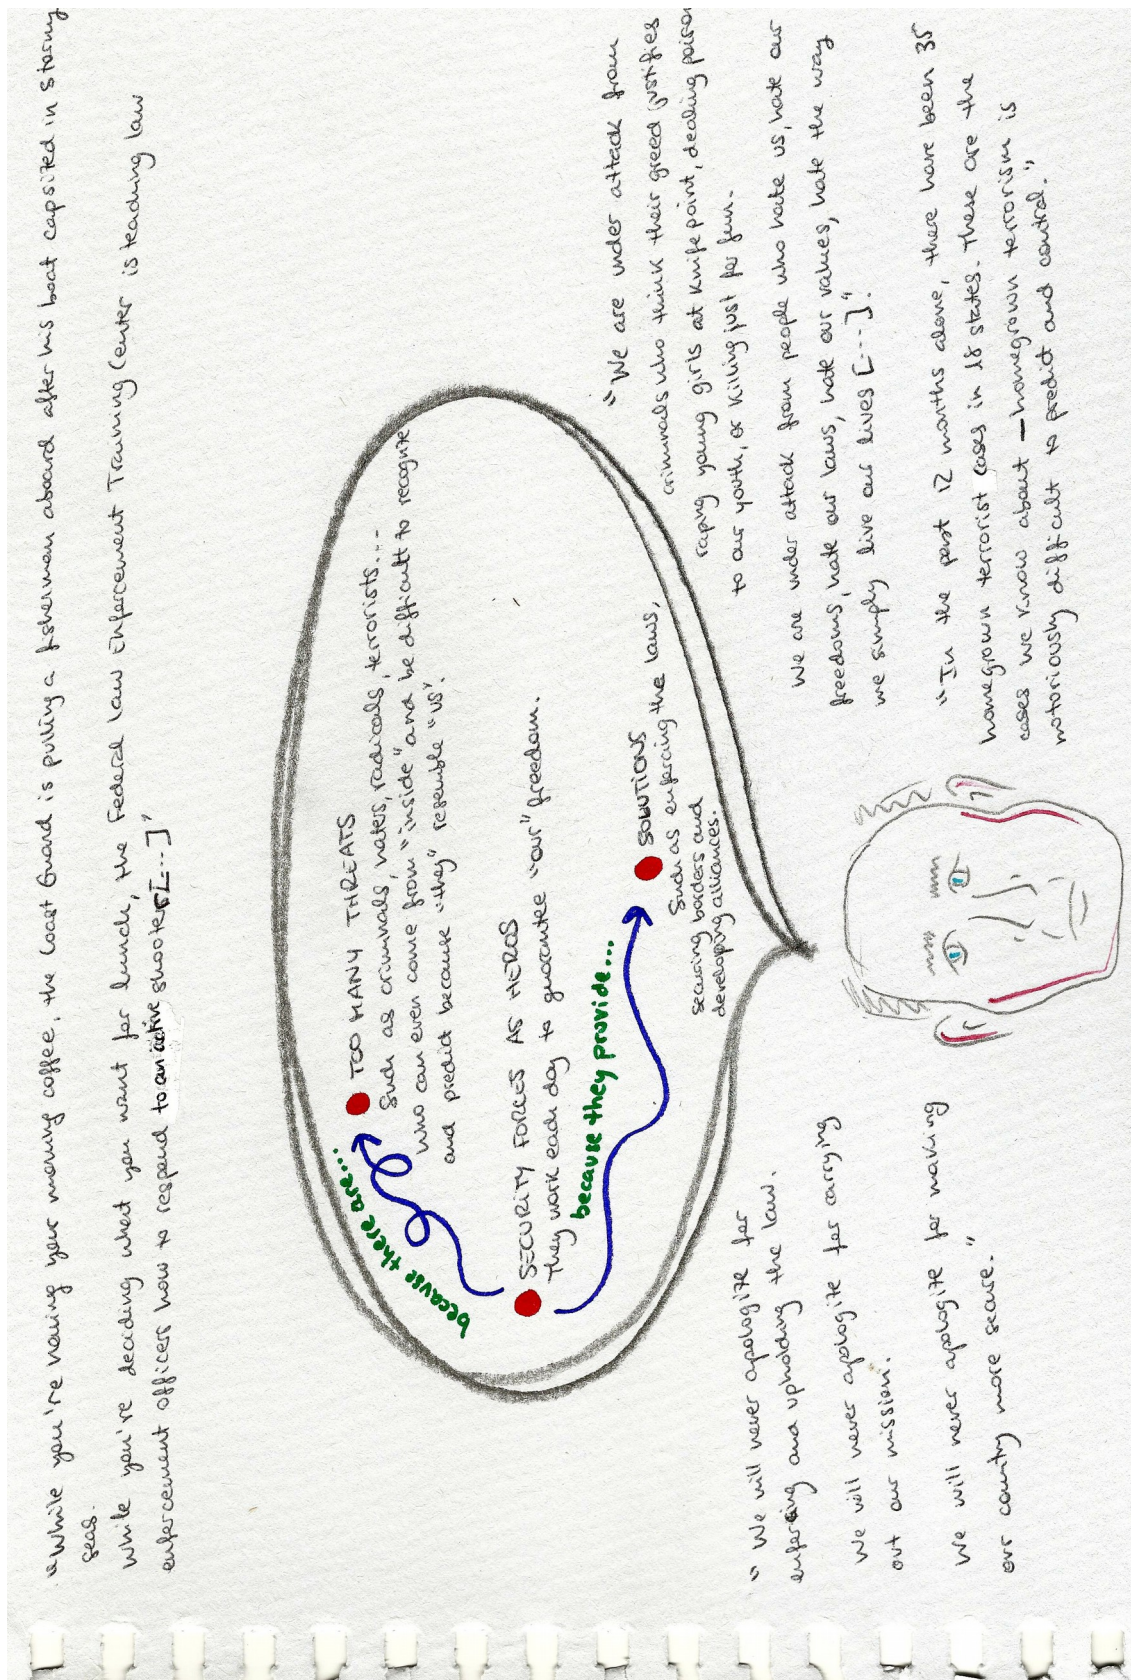 "While you're having your morning coffee, the Coast Guard is pulling a fisherman aboard after his boat capsized in stormy
seas.
While you're deciding what you want for lunch, the Federal Law Enforcement Training Center is teaching law
enforcement officers how to respond to an active shooter[...]"
because there are...
TOO MANY THREATS
Such as criminals, haters, radicals, terrorists...
Who can even come from "inside" and be difficult to recognize
and predict because "they" resemble "us".
SECURITY FORCES AS HEROS
They work each day to guarantee "our" freedom.
because they provide...
SOLUTIONS
Such as enforcing the laws,
securing borders and
developing alliances.
"We are under attack from
criminals who think their greed justifies
raping young girls at knife point, dealing poison
to our youth, or killing just for fun.
We are under attack from people who hate us, hate our
freedoms, hate our laws, hate our values, hate the way
we simply live our lives [...]".
"In the past 12 months alone, there have been 35
homegrown terrorist cases in 18 states. These are the
cases we know about – homegrown terrorism is
notoriously difficult to predict and control."
"We will never apologize for
enforcing and upholding the law.
We will never apologize for carrying
out our mission.
We will never apologize for making
our country more secure."